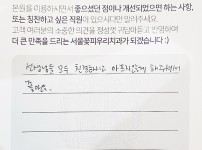 본원을 이용하시면서 좋으셨던 점이나 개선되었으면 하는 사항,
또는 칭찬하고 싶은 직원이 있으시다면 알려주세요.
고객 여러분의 소중한 의견을 정성껏 귀담아듣고 반영하여
더 큰 만족을 드리는 서울꽃피우리치과가 되겠습니다 :)
선생님들 모두 친절하시고 아프지않게 해주셔서
좋아요.